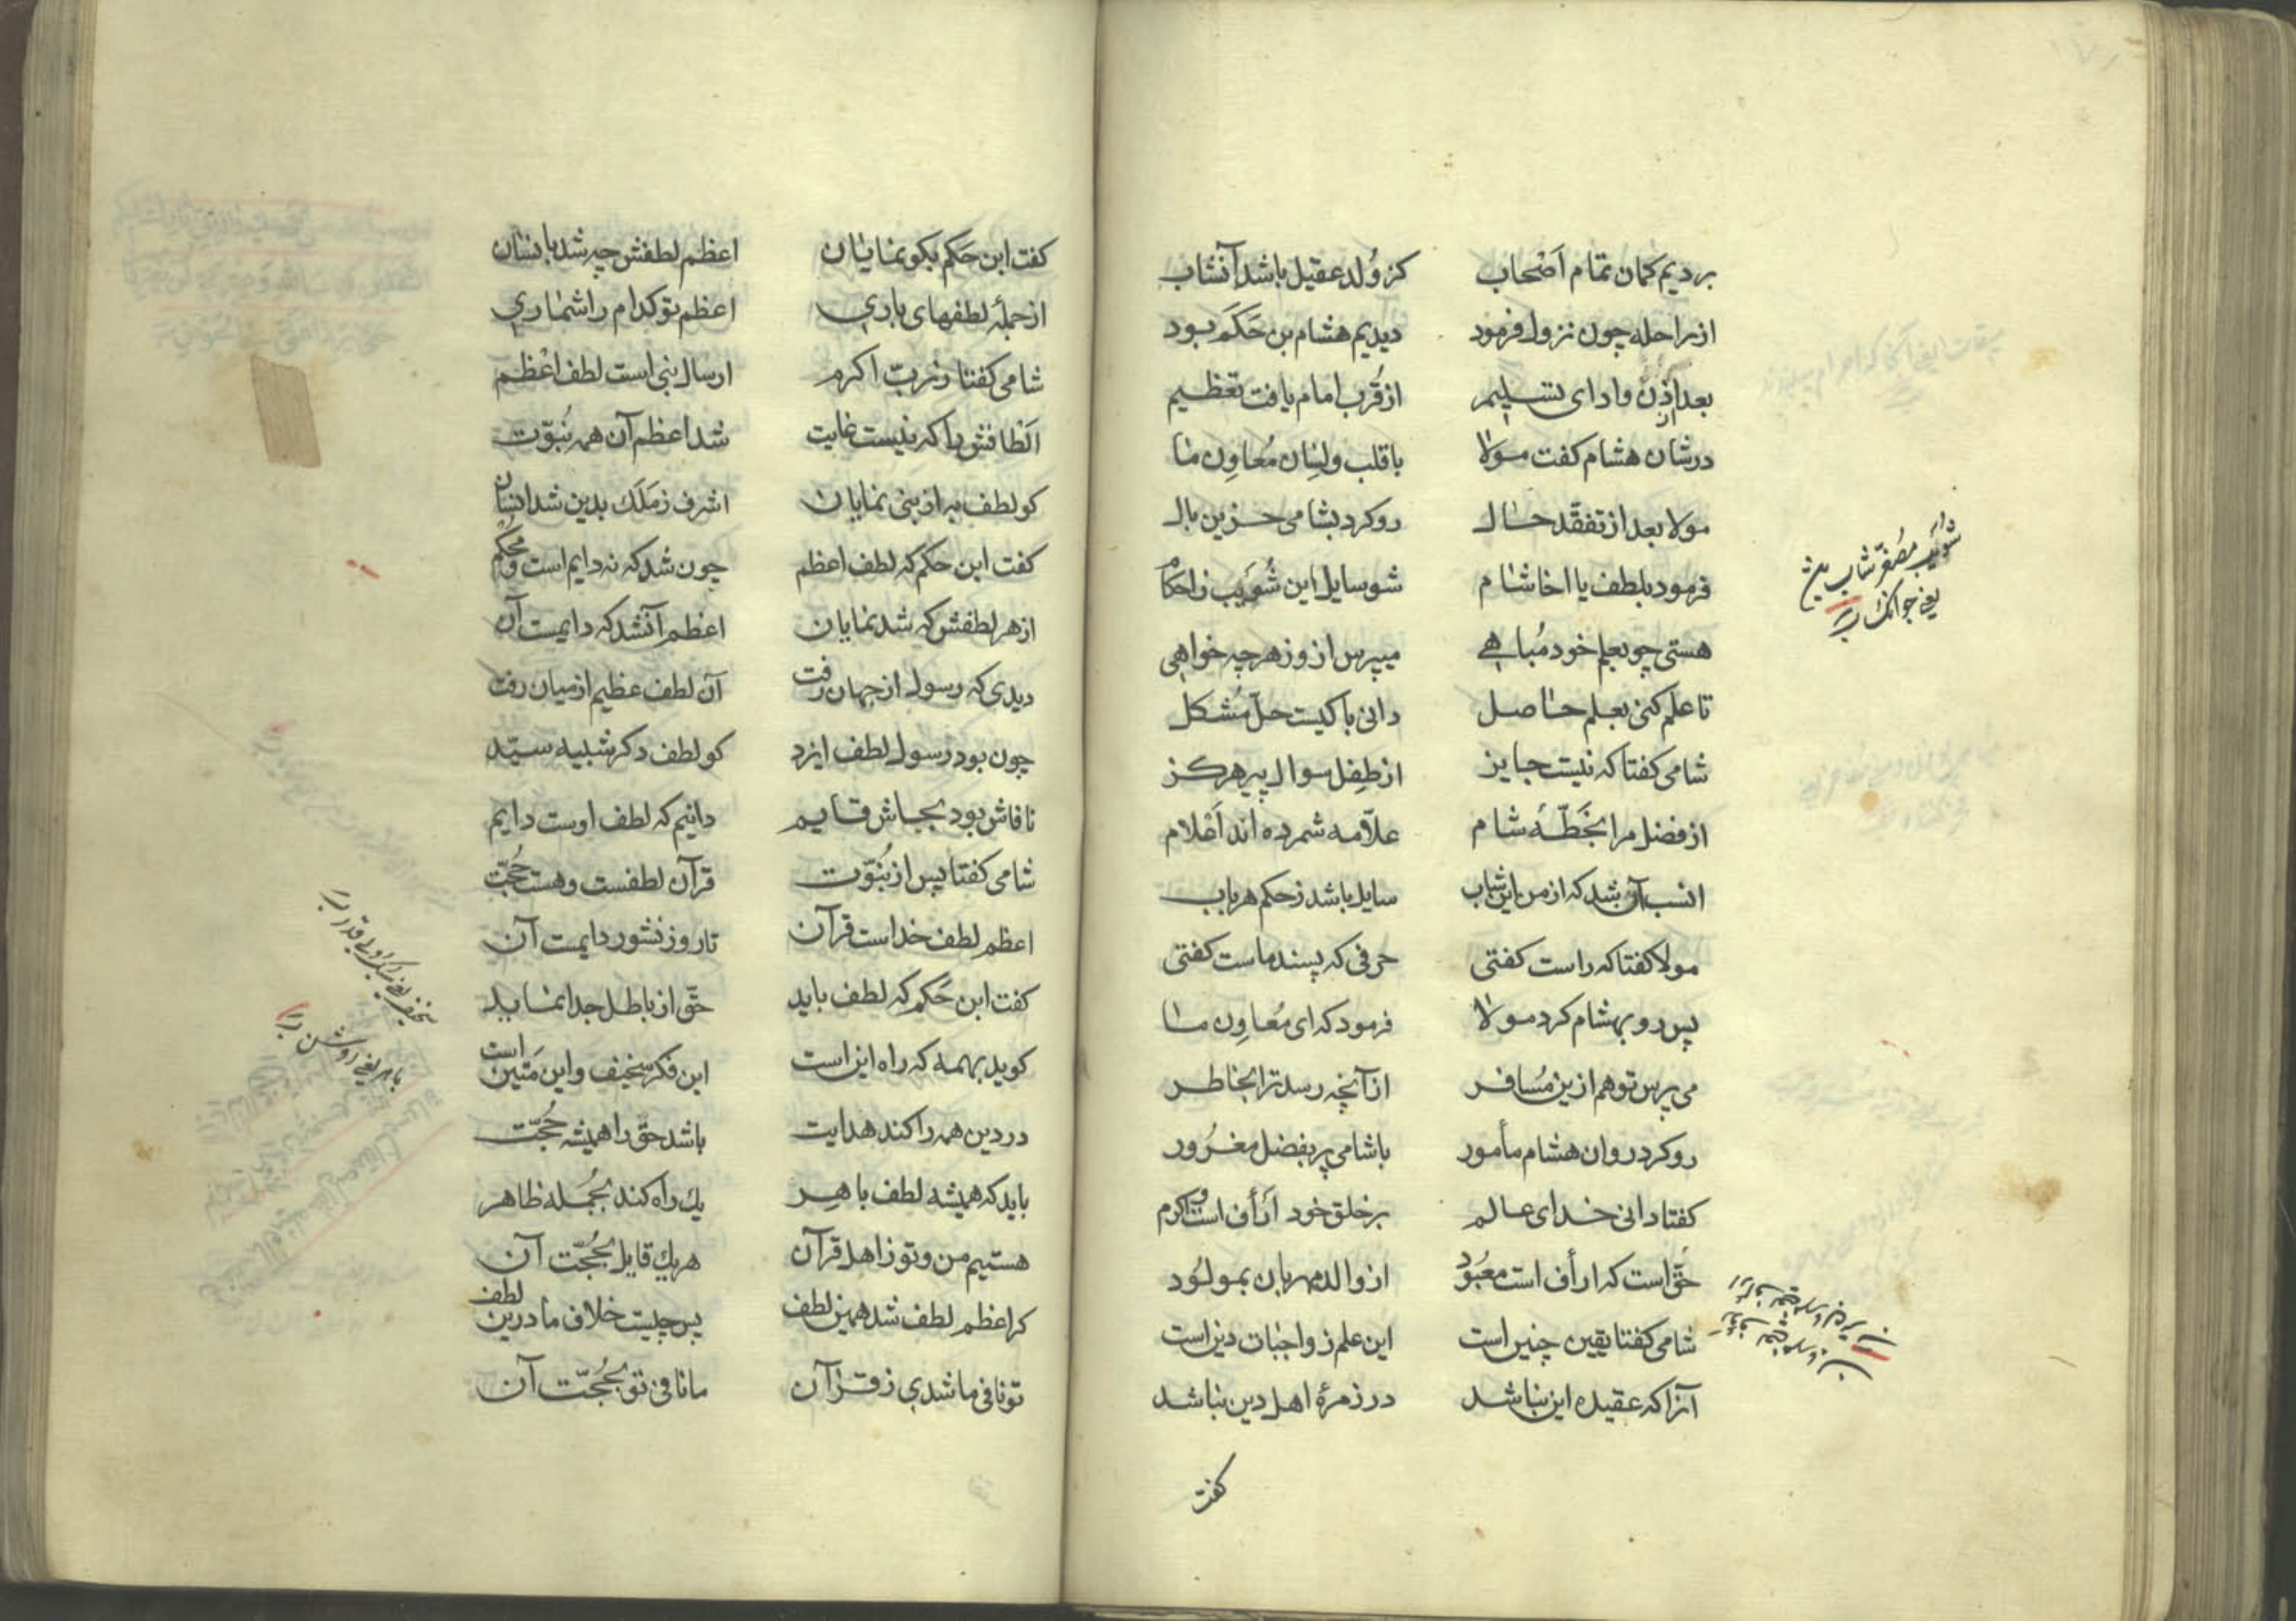 بردیم کمان تمام اَصْحاب کز وُلد عقیل باشد آنشاب
از راحله چون نزول فرمود دیدیم هشام بن حَکَم بود
بعد از اذن وادای تسلیم از قُرب امام یافت تعظیم
در شان هشام کفت مولا با قلب ولِسان مُعاوِن ما
مولا بعد از تفقّد حال رو کرد بشامی حزین بال
فرمود بلطف یا اخا شام شو سایل این شُوَیب زاحکام
هستی چو بعلم خود مُباهی میپرس ازو ز هر چه خواهی
تا علم کنی بعلم حاصل دانی با کیست حلّ مُشکل
شامی کفتا که نیست جایز از طِفل سوال پیر هرکز
از فضل مرا بخَطّهٔ شام علّامه شمرده اند اَعْلام
انسب آن شد که از من این شاب سایل باشد ز حکم هر باب
مولا کفتا که راست کفتی حرفی که پسند ماست کفتی
پس رو بهشام کرد مولا فرمود که ای مُعاوِن ما
می پرس تو هم ازین مُسافر از آنچه رسد ترا بخاطر
رو کرد روان هشام مأمور با شامی پر بفضل مغرُور
کفتا دانی خدای عالم بر خلق خود اَرأف است و اکرم
حقّ است که ارأف است معبُود از والد مهربان بمولُود
شامی کفتا یقین چنین است این علم ز واجبات دین است
آنرا که عقیده این نباشد در زمرهٔ اهل دین نباشد
شُوَیب مصغّر شابّ
یعنی جوانک
کفت
کفت ابن حَکَم بکو نمایان اعظم لطفش چه شد بانسان
از جملهٔ لطفهای باری اعظم تو کدام را شماری
شامی کفتا ز ربّ اکرم ارسال نبی است لطف اعْظم
اَلطافش را که نیست غایت شد اعظم آن همه نُبوّت
کو لطف به از نبی نمایان اشرف ز مَلَک بدین شد انسان
کفت ابن حکم که لطف اعظم چون شد که نه دایم است و مُحکم
از هر لطفش که شد نمایان اعظم آنشد که دایمست آن
دیدی که رسول از جهان رفت آن لطف عظیم از میان رفت
چون بود رسول لطف ایزد کو لطف دکر شبیه سیّد
تا فاش بود بجاش قایم دانیم که لطف اوست دایم
شامی کفتا پس از نُبوّت قرآن لطفست و هست حُجّت
اعظم لطف خداست قرآن تا روز نشور دایمست آن
کفت ابن حَکَم که لطف باید حقّ از باطل جدا نماید
کوید بهمه که راه این است این فکر سخیف و این مَتین است
در دین همه را کند هدایت باشد حقّ را همیشه حُجّت
باید که همیشه لطف باهِر یک راه کند بجُمله ظاهر
هستیم من و تو ز اهل قرآن هر یک قایل بحُجّت آن
کر اعظم لطف شد همین لطف پس چیست خلاف ما درین لطف
تو نافی ما شدی ز قرآن ما نافی تو بحُجّت آن
باهر یعنی روشن